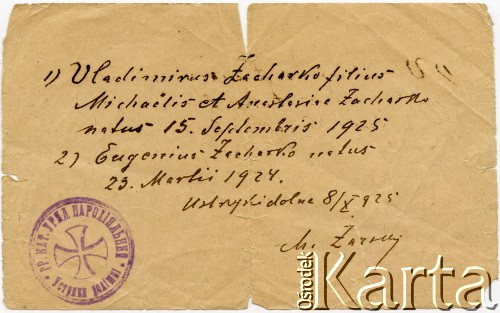 1) Vladimirus Zacharko filius
Michaëlis et Anastasiae Zacharko
natus 15. Septembris 1925
2) Eugenius Zacharko natus
23. Martii 1924.
Ustrzykidolne 8/X 925
M.
ГР. КАТ. УРЯД ПАРОХІЯЛЬНИЙ
Устрики долішні
Ośrodek
Karta